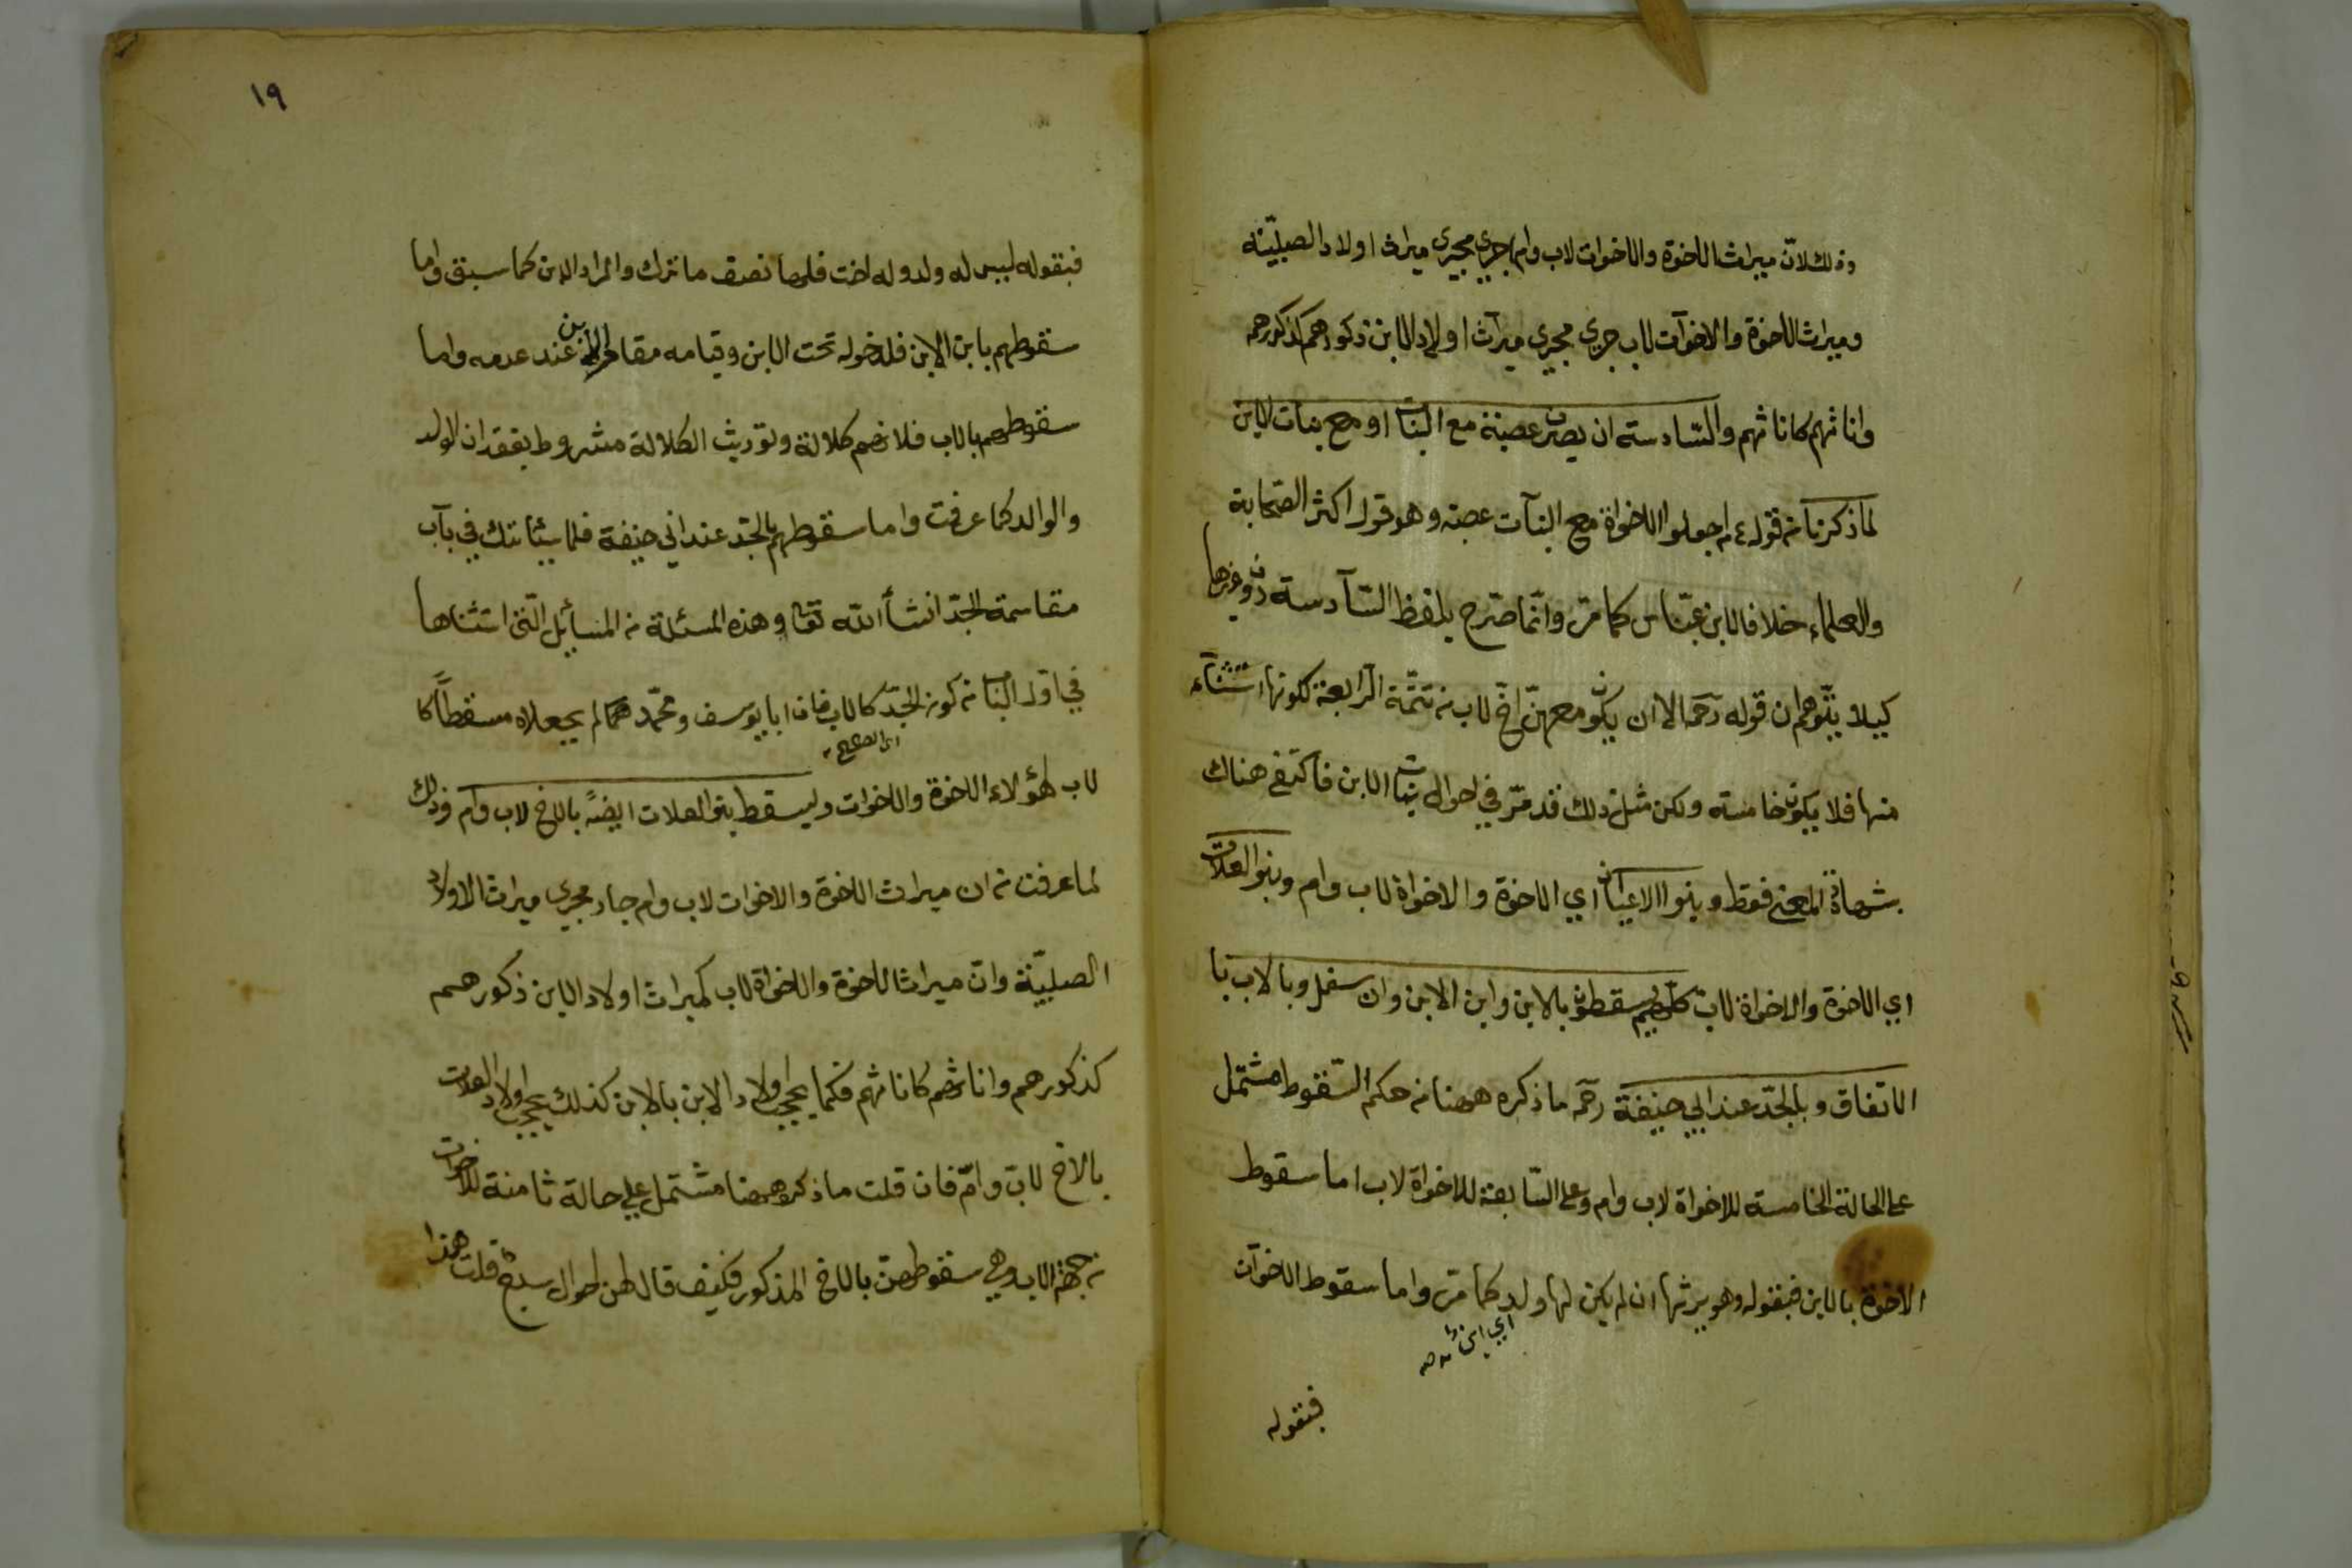 وذلك لان ميراث الاخوة والاخوات لاب وام اجري مجرى ميراث اولاد الصلبيّة
وميراث الاخوة والاخوات لاب جرى مجرى ميراث اولاد الابن ذكورهم كذكورهم
واناثهم كاناثهم والسّادسة ان يصرن عصبة مع البنات او مع بنات الابن
لما ذكرنا من قوله ع م اجعلوا الاخواة مع البنات عصبة وهو قول اكثر الصّحابة
والعلماء خلافا لابن عبّاس كما مرّ وانّما صرّح بلفظ السّادسة دون غيرها
كيلا يتوهم ان قوله رحمه الا ان يكون معهنّ اخ لاب من تتمّة الرّابعة لكونها استثناء
منها فلا يكون خامسة ولكن مثل ذلك قد مرّ في احوال بنات الابن فاكتفى هناك
بشهادة المعنى فقط وبنوا الاعيان اي الاخوة والاخواة لاب وام وبنوا العلات
اي الاخوة والاخواة لاب كلهم يسقطون بالابن وابن الابن وان سفل وبالاب با
الاتفاق وبالجدّ عند ابي حنيفة رحمه ما ذكره ههنا من حكم السّقوط مشتمل
على الحالة الخامسة للاخواة لاب وام وعلى السّابعة للاخواة لاب اما سقوط
الاخوة بالابن فبقوله وهو يرثها ان لم يكن لها ولد كما مرّ واما سقوط الاخوات
اي ابن
فبقوله
١٩
فبقوله ليس له ولد وله اخت فلها نصف ما ترك والمراد الابن كما سبق واما
سقوطهم بابن الابن فلدخوله تحت الابن وقيامه مقام الابن عند عدمه واما
سقوطهم بالاب فلانهم كلالة وتوريث الكلالة مشروط بفقدان الولد
والوالد كما عرفت واما سقوطهم بالجدّ عند ابي حنيفة فلما سيأتيك في باب
مقاسمة الجدّ انشأ الله تعا وهذه المسئلة من المسايل الّتي استثناها
في اول الباب من كون الجدّ كالاب فان ابا يوسف ومحمّد رحمهما لم يجعلاه مسقطاً كا
اى الصحيح
لاب لهؤلاء الاخوة والاخوات ويسقط بنو العلات ايضً بالاخ لاب وام وذلك
لما عرفت من ان ميراث الاخوة والاخوات لاب وام جار مجرى ميراث الاولاد
الصلبيّة وانّ ميراث الاخوة والاخواة لاب كميراث اولاد الابن ذكورهم
كذكورهم واناثهم كاناثهم فكما يحجب اولاد الابن بالابن كذلك يحجب اولاد العلات
بالاخ لاب وامّ فان قلت ما ذكره ههنا مشتمل على حالة ثامنة للاخوات
من جهة الاب وهي سقوطهنّ بالاخ المذكور فكيف قال لهن احوال سبع قلت هذا